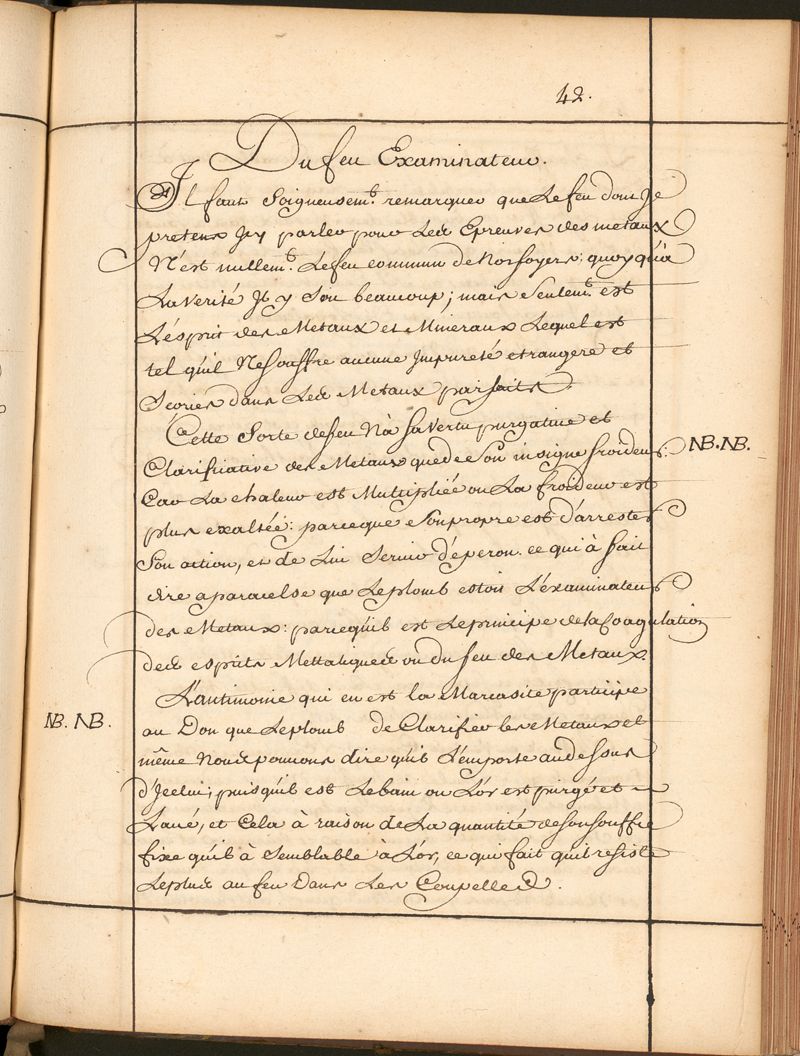 42.
Du feu Examinateur.
Il faut Soigneusem.t remarquer que Le feu dont Je
pretens Jcy parler pour Les Epreuves des metaux
N'est nullem.t Le feu commun de Nos foyers; quoy qu'à
La Verité Jl y Son beaucoup; mais Seulem.t est
L'ésprit des Metaux et Mineraux Lequel est
tel qu'il Ne Souffre aucune Jmpureté etrangere et
Scories dans Les Metaux parfaits.
Cette Sorte de feu N'à Sa Vertu purgative et
Clarificative des Metaux que de Son insigne froideur:
NB. NB.
Car La chaleur est Multipliée ou La froideur est
plus exaltée: parceque Son propre est d'arrester
Son action, et de Lui Servir d'éperon. ce qui à fait
dire a paracelse que Le plomb estoit L'éxaminateur
des Metaux: parcequ'il est Le principe de la Coagulation
des esprits Mettaliques ou du feu des Metaux.
L'antimonie qui en est la Marcasite participe
NB. NB.
au Don que Le plomb de Clarifier les Metaux et
même Nous pouvons dire qu'il L'emporte au dessus
d'Jcelui, puisqu'il est Le bain ou L'ór est purgé et
Laué, et Cela à raison de La quantité de son souffre
fixe qu'il à Semblable à L'or, ce qui fait qu'il resiste
Le plus au feu Dans Les Coupelles.